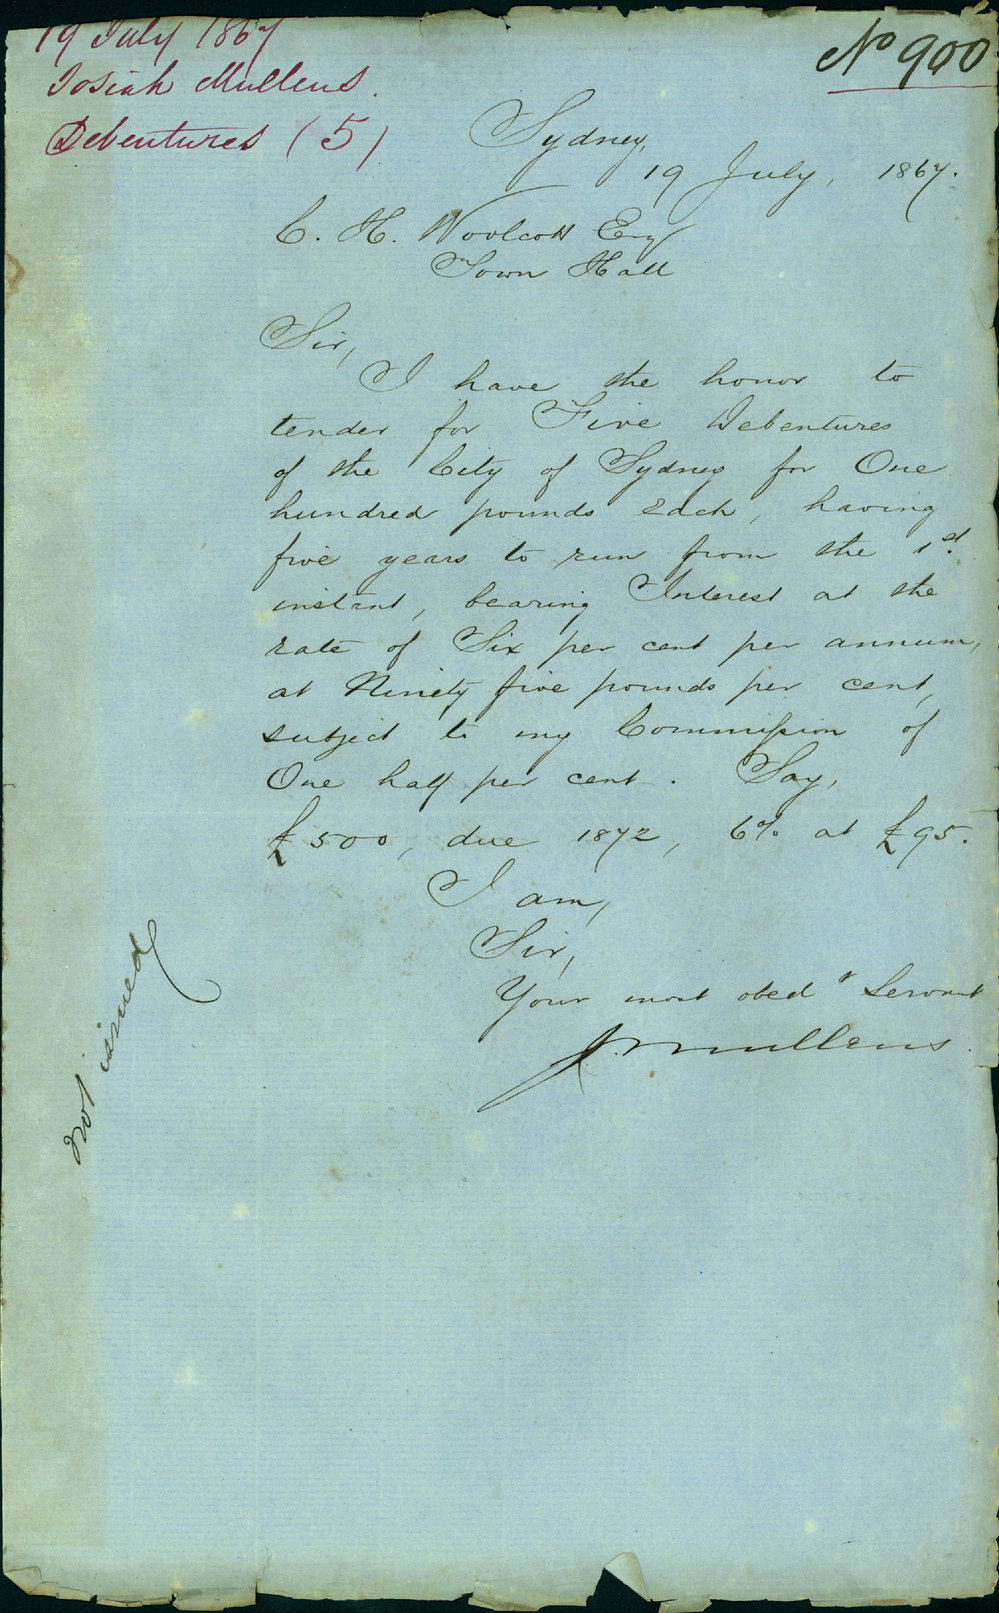 19 July 1867
Josiah Mullens.
Debentures (5)
No 900
Sydney,
19 July, 1867.
C. H. Woolcott Esq
Town Hall
Sir,
I have the honor to
tender for Five Debentures
of the City of Sydney for One
hundred pounds each, having
five years to run from the 1st
instant, bearing Interest at the
rate of Six per cent per annum,
at Ninety five pounds per cent,
subject to my Commission of
One half per cent. Say,
£500, due 1872, 6% at £95.
I am,
Sir,
Your most obedt Servant
J. Mullens.
Not issued